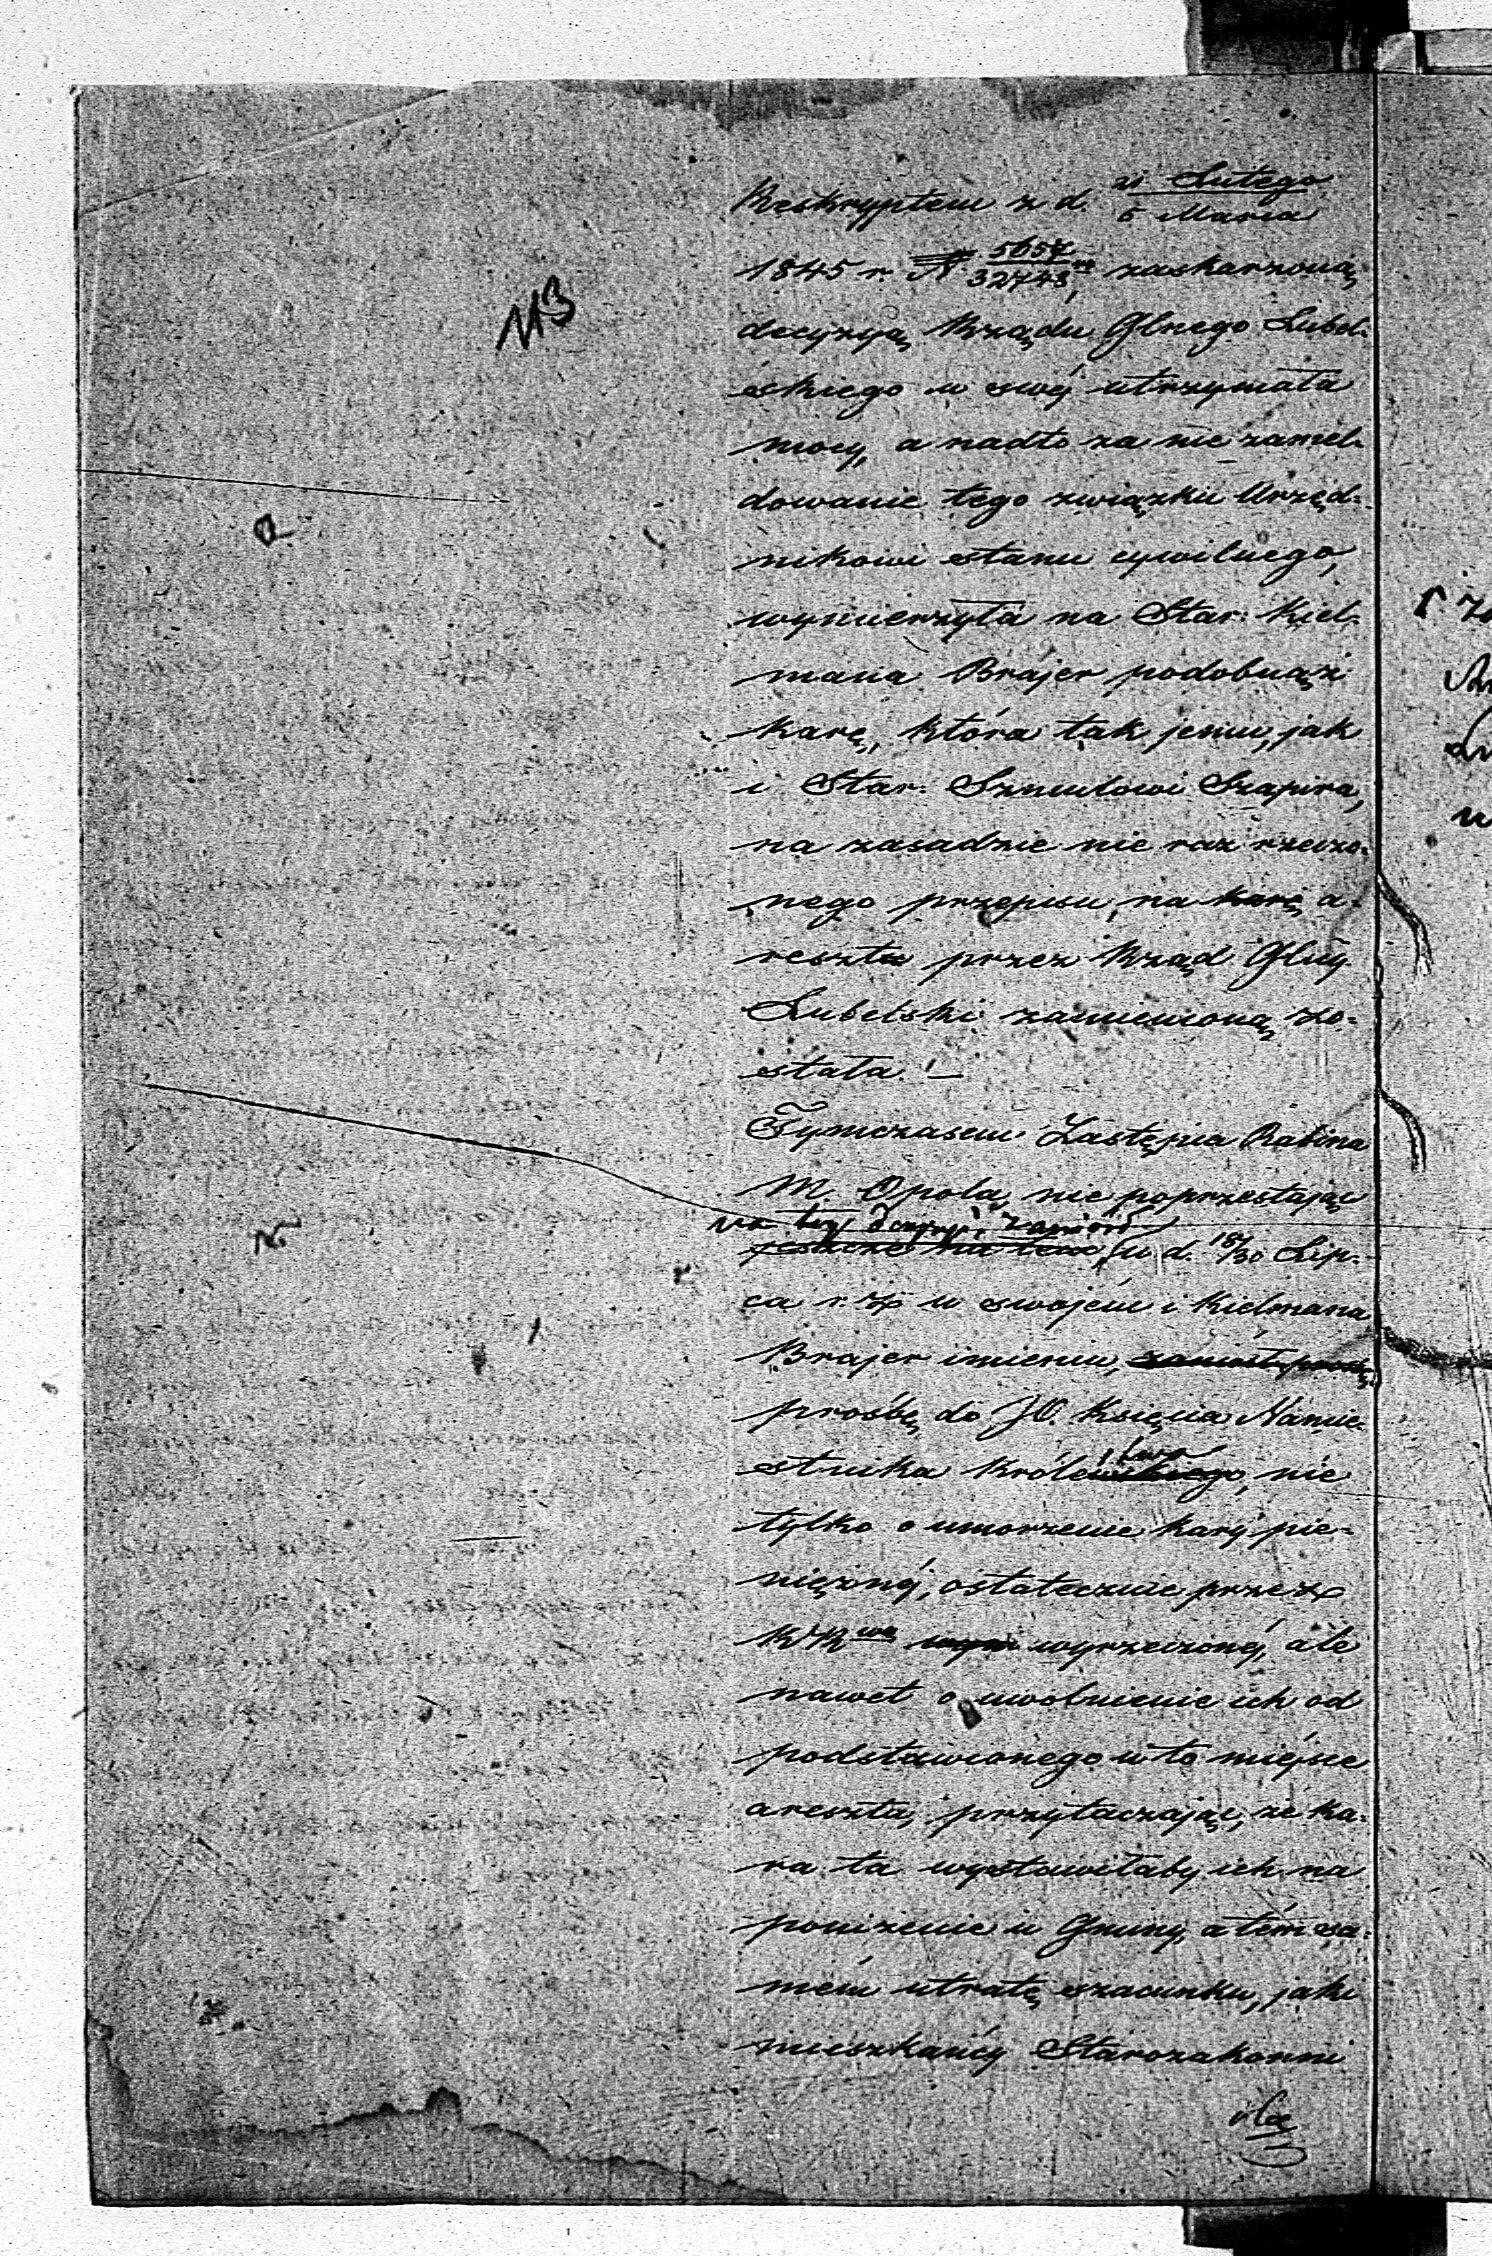 113
Reskryptem z d. 21 Lutego / 5 Marca
1845 r. N. 5657/32748, zaskarżoną
decyzyą Rządu Glnego Lubel-
skiego w swéj utrzymała
mocy, a nadto za nie zamel-
dowanie tego związku Urzęd-
nikowi stanu cywilnego,
wymierzyła na Star. Kiel-
mana Brajer podobnąż
karę, która tak jemu, jak
i Star. Szmulowi Szapira,
na zasadzie nie raz rzeczo-
nego przepisu, na karę a-
resztu przez Rząd Glny
Lubelski zamienioną zo-
stała. —
Tymczasem Zastępca Rabina
M. Opola, nie poprzestając
na téj decyzyi, zaniósł
jeszcze na tem, w d. 18/30 Lip-
ca r. z. w swojém i Kielmana
Brajer imieniu, zaniósł
prośbę do JO. Księcia Namie-
stnika Królewskiego, nie
stwa
tylko o umorzenie kary pie-
niężnéj, ostatecznie przez
KR wyrzeczonéj, ale
nawet o uwolnienie ich od
podstawionego w to miejsce
aresztu, przytaczając, że ka-
ra ta wystawiłaby ich na
poniżenie w Gminy, a tém sa-
mém utratę szacunku, jaki
mieszkańcy Starozakonni
dla